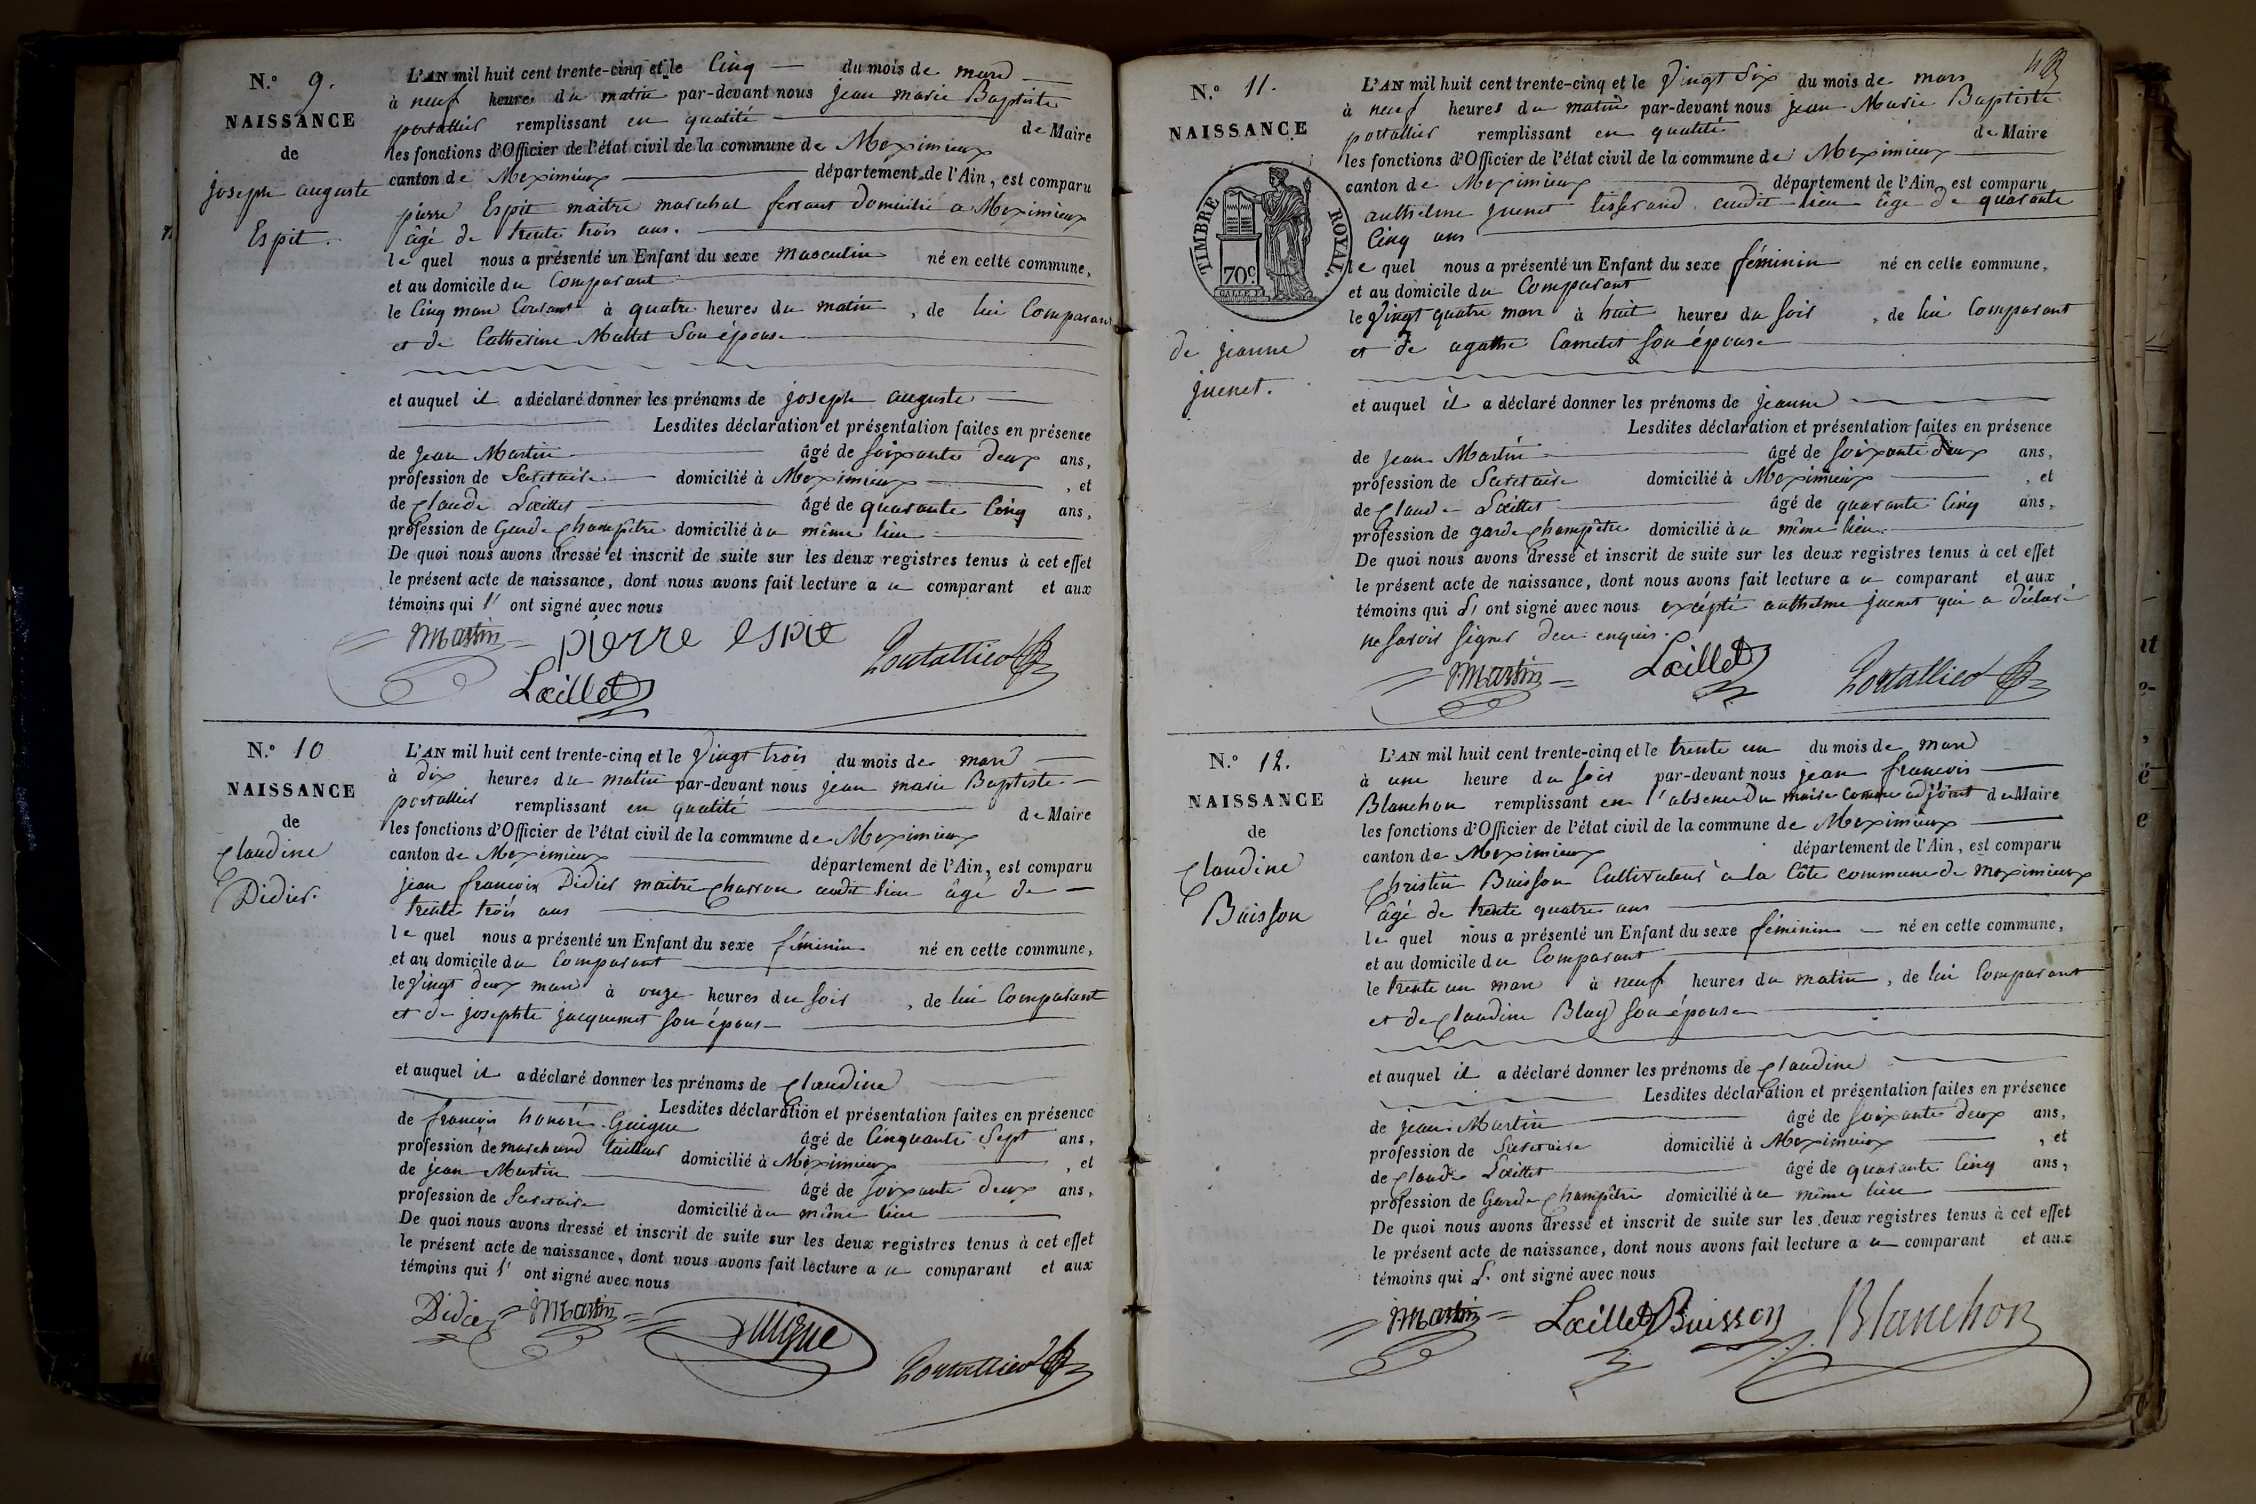 N.º 9.
NAISSANCE
de
joseph auguste
Espit.
L'AN mil huit cent trente-cinq et le Cinq du mois de mars
à neuf heures du matin par-devant nous jean marie Baptiste
portallier remplissant en qualité de Maire
les fonctions d'Officier de l'état civil de la commune de Meximieux
canton de Meximieux département de l'Ain, est comparu
pierre Espit maitre marechal ferrant domicilié a Meximieux
âgé de trente trois ans.
le quel nous a présenté un Enfant du sexe masculin né en cette commune,
et au domicile du Comparant
le Cinq mars Courant à quatre heures du matin, de lui Comparant
et de Catherine Mallet Son épouse
et auquel il a déclaré donner les prénoms de joseph auguste
Lesdites déclaration et présentation faites en présence
de jean Martin âgé de soixante deux ans,
profession de Secretaire domicilié à Meximieux, et
de Claude Lœillet âgé de quarante Cinq ans,
profession de Garde Champêtre domicilié au même lieu
De quoi nous avons dressé et inscrit de suite sur les deux registres tenus à cet effet
le présent acte de naissance, dont nous avons fait lecture au comparant et aux
témoins qui l' ont signé avec nous
Martin pierre espit
Lœillet Portallier
N.º 10
NAISSANCE
de
Claudine
Didier.
L'AN mil huit cent trente-cinq et le Vingt trois du mois de mars
à dix heures du matin par-devant nous jean marie Baptiste
portallier remplissant en qualité de Maire
les fonctions d'Officier de l'état civil de la commune de Meximieux
canton de Meximieux département de l'Ain, est comparu
jean françois Didier maitre Charron audit lieu âgé de
trente trois ans
le quel nous a présenté un Enfant du sexe féminin né en cette commune,
et au domicile du Comparant
le Vingt deux mars à onze heures du soir, de lui Comparant
et de josephte jacquemet son épouse
et auquel il a déclaré donner les prénoms de Claudine
Lesdites déclaration et présentation faites en présence
de françois honoré Guigue âgé de Cinquante Sept ans,
profession de marchand tailleur domicilié à Meximieux, et
de jean Martin âgé de soixante deux ans,
profession de Secretaire domicilié au même lieu
De quoi nous avons dressé et inscrit de suite sur les deux registres tenus à cet effet
le présent acte de naissance, dont nous avons fait lecture au comparant et aux
témoins qui l' ont signé avec nous
Didier Martin Guigue
Portallier
N.º 11.
NAISSANCE
TIMBRE ROYAL.
70c.
de jeanne
juenet.
L'AN mil huit cent trente-cinq et le Vingt Six du mois de mars
à neuf heures du matin par-devant nous jean Marie Baptiste
portallier remplissant en qualité de Maire
les fonctions d'Officier de l'état civil de la commune de Meximieux
canton de Meximieux département de l'Ain, est comparu
anthelme juenet tisserand audit lieu âgé de quarante
Cinq ans
le quel nous a présenté un Enfant du sexe féminin né en cette commune,
et au domicile du Comparant
le Vingt quatre mars à huit heures du soir, de lui Comparant
et de agathe Cametet son épouse
et auquel il a déclaré donner les prénoms de jeanne
Lesdites déclaration et présentation faites en présence
de jean Martin âgé de soixante deux ans,
profession de Secretaire domicilié à Meximieux, et
de Claude Lœillet âgé de quarante Cinq ans,
profession de garde Champêtre domicilié au même lieu
De quoi nous avons dressé et inscrit de suite sur les deux registres tenus à cet effet
le présent acte de naissance, dont nous avons fait lecture au comparant et aux
témoins qui l' ont signé avec nous excépté anthelme juenet qui a déclaré
ne savoir signer de ce enquis.
Martin Lœillet Portallier
N.º 12.
NAISSANCE
de
Claudine
Buisson
L'AN mil huit cent trente-cinq et le trente un du mois de mars
à une heure du soir par-devant nous jean françois
Blanchon remplissant en l'absence du maire comme adjoint de Maire
les fonctions d'Officier de l'état civil de la commune de Meximieux
canton de Meximieux département de l'Ain, est comparu
Christin Buisson Cultivateur à la Côte commune de Meximieux
âgé de trente quatre ans
le quel nous a présenté un Enfant du sexe féminin né en cette commune,
et au domicile du Comparant
le trente un mars à neuf heures du matin, de lui Comparant
et de Claudine Bluy son épouse
et auquel il a déclaré donner les prénoms de Claudine
Lesdites déclaration et présentation faites en présence
de jean Martin âgé de soixante deux ans,
profession de Secretaire domicilié à Meximieux, et
de Claude Lœillet âgé de quarante Cinq ans,
profession de Garde Champêtre domicilié au même lieu
De quoi nous avons dressé et inscrit de suite sur les deux registres tenus à cet effet
le présent acte de naissance, dont nous avons fait lecture au comparant et aux
témoins qui l' ont signé avec nous
Martin Lœillet Buisson Blanchon